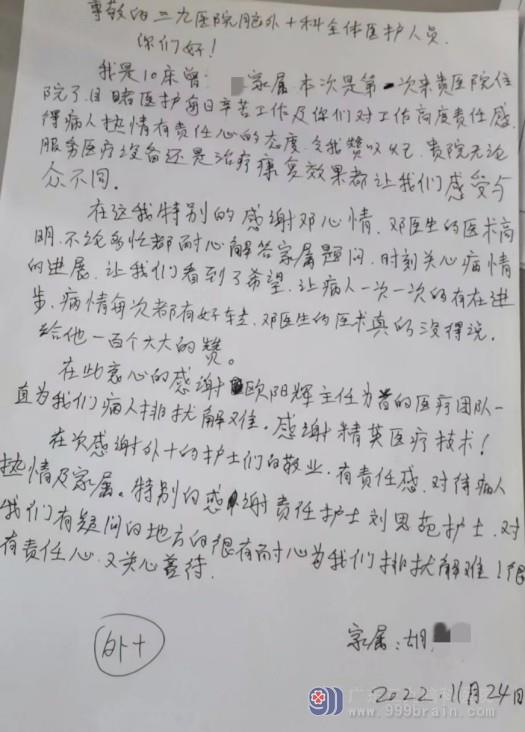 尊敬的三九医院脑外十科全体医护人员.
你们好!
我是10床曾 家属.本次是第一次来贵医院住
院了.目睹医护每日辛苦工作及你们对工作高度责任感.
得病人热情有责任心的态度.令我赞叹不已.贵院无论
服务医疗设备还是治疗康复效果都让我们感受与
众不同。
在这我特别的感谢邓心情.邓医生的医术高
明.不论多忙都耐心解答家属题问.时刻关心病情
的进展.让我们看到了希望.让病人一次一次的有在进
步.病情每次都有好转.邓医生的医术真的没得说.
给他一百个大大的赞。
在此衷心的感谢欧阳辉主任为首的医疗团队一
直为我们病人排扰解难。感谢精英医疗技术!
在次感谢外十的护士们的敬业.有责任感.对待病人
热情及家属。特别的感谢责任护士刘思苑护士.对
我们有疑问的地方的很有耐心为我们排扰解难!很
有责任心.又关心善待.
外十
家属:胡
2022.11月24日
www.999brain.com